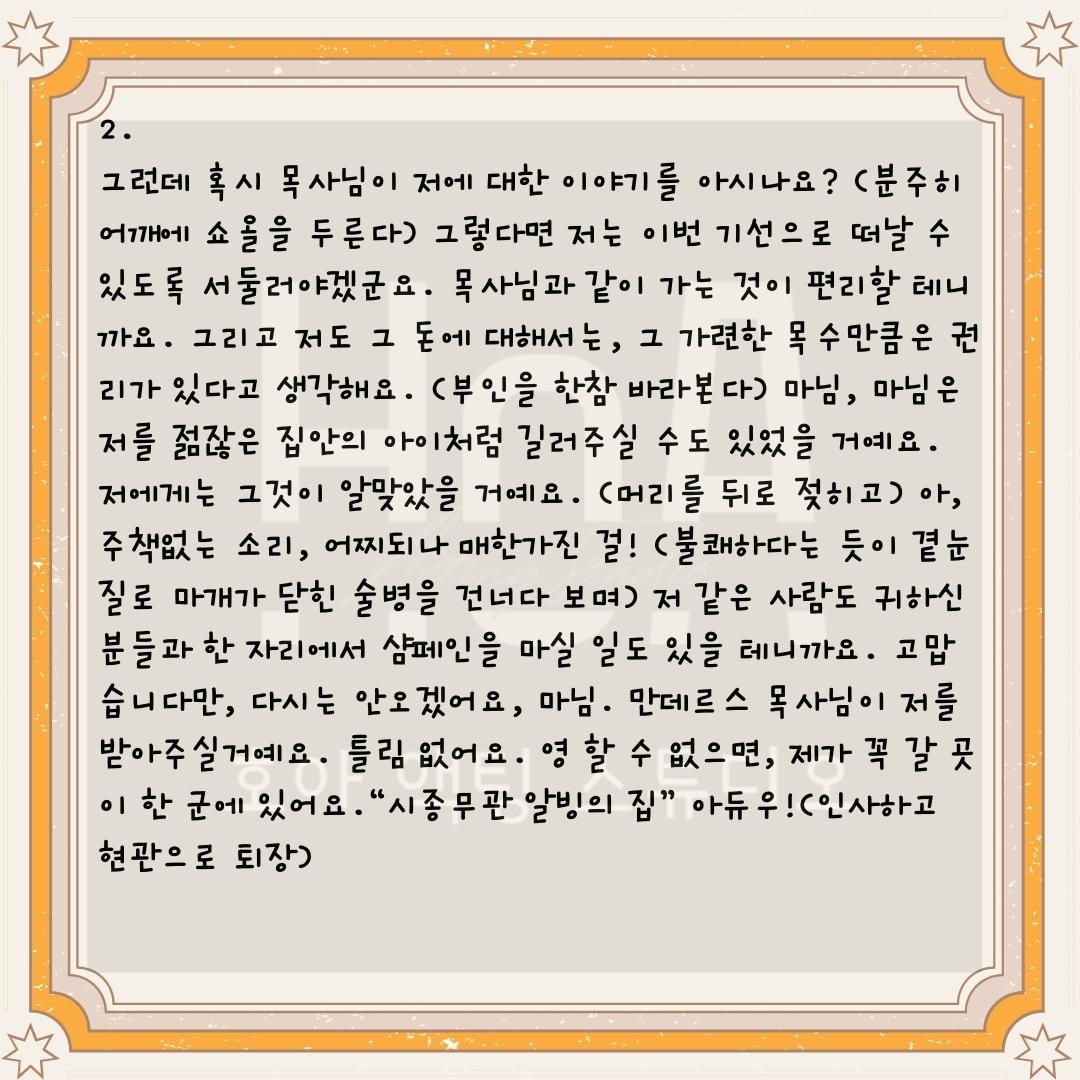 2.
그런데 혹시 목사님이 저에 대한 이야기를 아시나요? (분주히
어깨에 쇼올을 두른다) 그렇다면 저는 이번 기선으로 떠날 수
있도록 서둘러야겠군요. 목사님과 같이 가는 것이 편리할 테니
까요. 그리고 저도 그 돈에 대해서는, 그 가련한 목수만큼은 권
리가 있다고 생각해요. (부인을 한참 바라본다) 마님, 마님은
저를 젊잖은 집안의 아이처럼 길러주실 수도 있었을 거예요.
저에게는 그것이 알맞았을 거예요. (머리를 뒤로 젖히고) 아,
주책없는 소리, 어찌되나 매한가진 걸! (불쾌하다는 듯이 곁눈
질로 마개가 닫힌 술병을 건너다 보며) 저 같은 사람도 귀하신
분들과 한 자리에서 샴페인을 마실 일도 있을 테니까요. 고맙
습니다만, 다시는 안오겠어요, 마님. 만데르스 목사님이 저를
받아주실거예요. 틀림없어요. 영 할 수 없으면, 제가 꼭 갈 곳
이 한 군에 있어요.“시종무관 알빙의 집” 아듀우!(인사하고
현관으로 퇴장)
HnA
호아 액팅 스튜디오